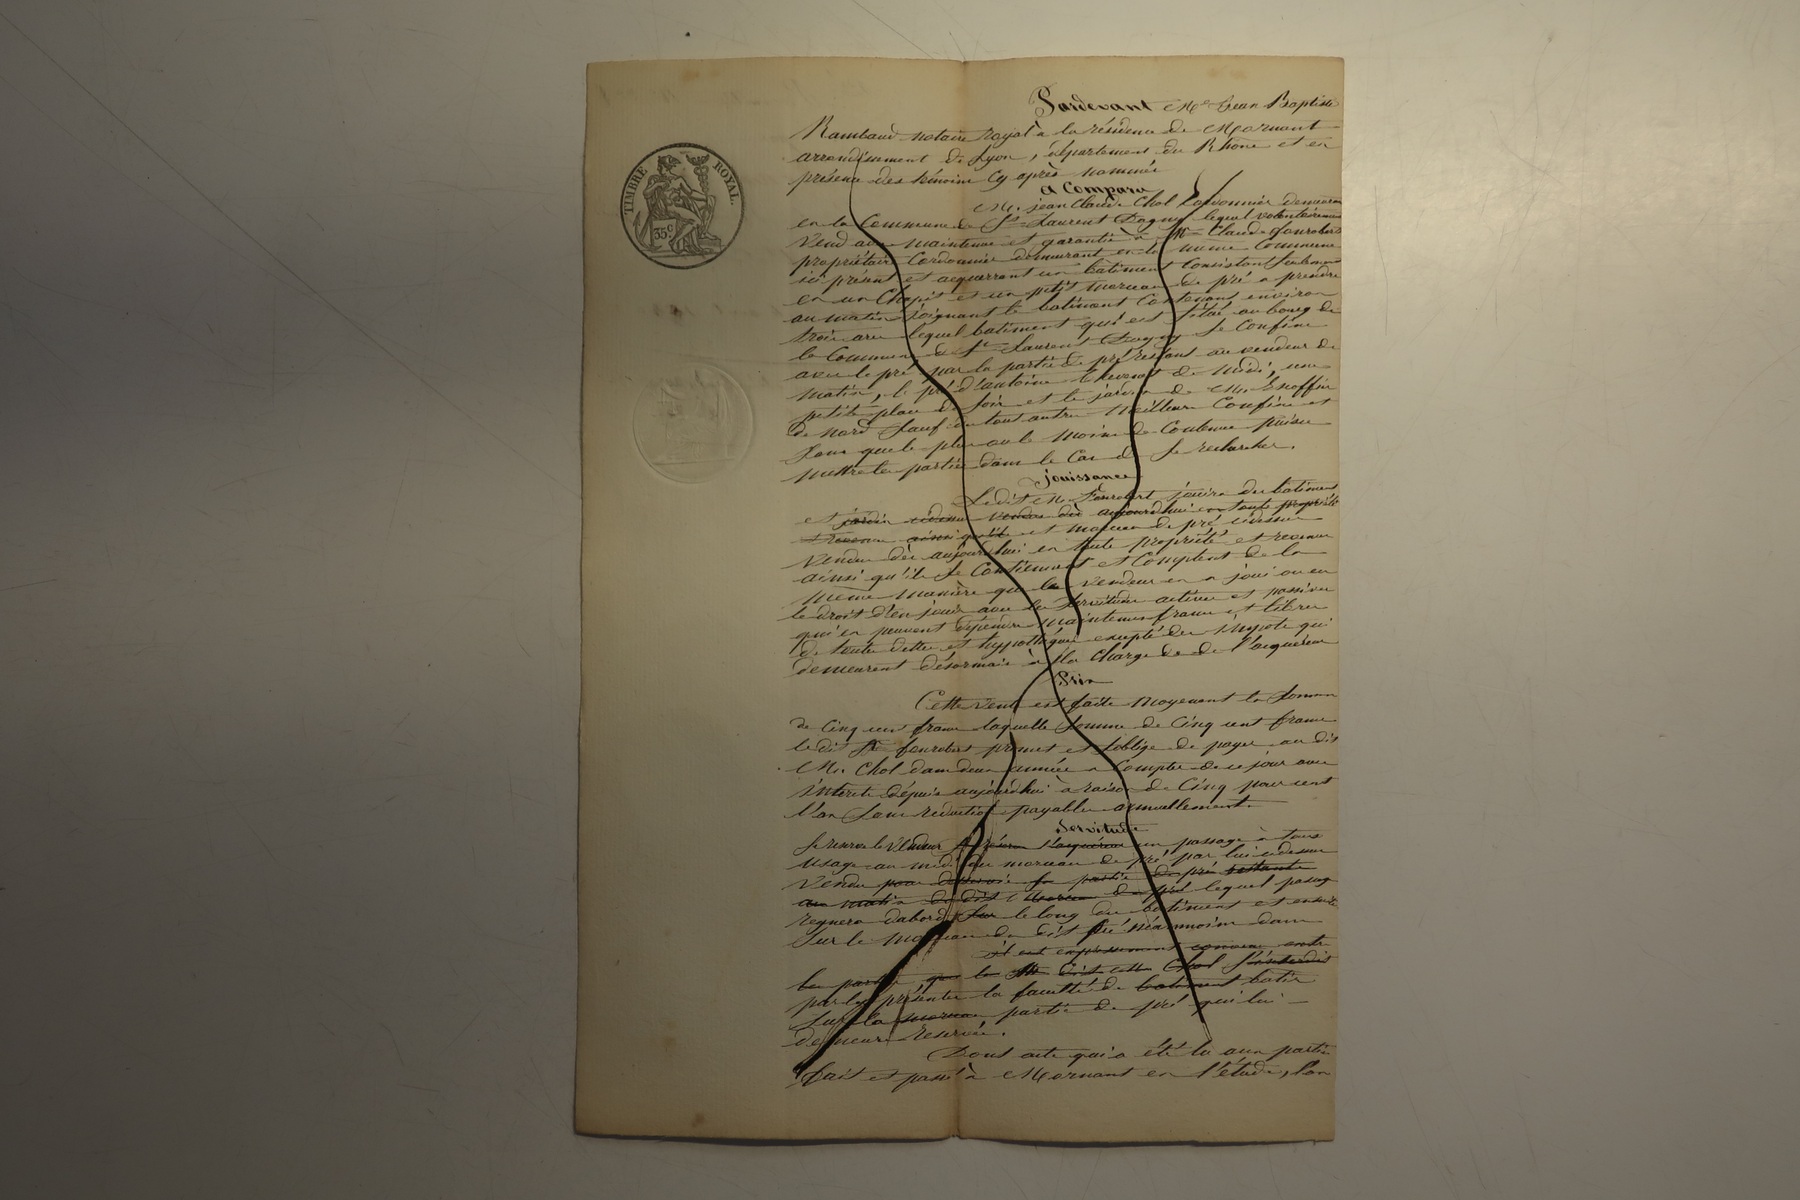 TIMBRE ROYAL.
35c
Pardevant Me Jean Baptiste
Rambaud notaire royal à la résidence de Mornant
arrondissement de Lyon, département du Rhône et en
présence des témoins cy après nommés
a Comparu
M. jean Claude Chol Cordonnier demeurant
en la Commune de St Laurent Dagny lequel volontairement
Vend avec maintenue et garantie à Me Claude fonrobert
propriétaire Cordonnier demeurant en la même Commune
ici présent et acquerrant un batiment Consistant seulement
en un Chapit et un petit morceau de pré a prendre
au matin joignant le batiment Contenant environ
trois ares lequel batiment qui est situé au bourg de
la Commune de St Laurent Dagny se Confine
avec le pré par la partie de pré restant au vendeur de
matin, le pré d'antoine thevenet de midi, une
petite place de soir et le jardin de M. Escoffier
de nord sauf de tout autre meilleurs Confins et
sans que le plus ou le moins de Contenue puisse
mettre les parties dans le Cas de se rechercher.
jouissance
Ledit M. fonrobert jouira du batiment
et jardin cidessus vendus dès aujourdhui en toute propriété
et revenus ainsi qu'ils et morceau de pré cidessus
Vendu dès aujourdhui en toute propriété et revenus
ainsi qu'ils se Contiennent et Comptent de la
même manière que le vendeur en a joui ou eu
le droit d'en jouir avec les servitudes actives et passives
qui en peuvent dépendre maintenus francs et libres
de toute dettes et hypothèques excepté des impots qui
demeurent désormais à la charge de de l'acquéreur
Prix
Cette vente est faite moyenant la somme
de Cinq cent francs laquelle somme de Cinq cent francs
ledit Sr fonrobert promet et s'oblige de payer au dit
M. Chol dans deux années a Compter de ce jour avec
interets depuis aujourdhui à raison de Cinq pour cent
l'an sans réduction payables annuellement.
Servitude
Se réserve le Vendeur l'acquéreur un passage à tous
usages au midi du morceau de pré par lui cidessus
Vendu pour desservir sa partie de pré restante
au matin du dit morceau de pré lequel passage
regnera dabord sur le long du batiment et ensuite
sur le morceau du dit pré Néanmoins dans
il est expressement convenu entre
les parties, que le Me Chol s'interdit
par les présentes la faculté de batiment batir
sur la morceau partie de pré qui lui
demeure réservée.
Dont acte qui a été lu aux parties
fait et passé à Mornant en l'étude, l'an